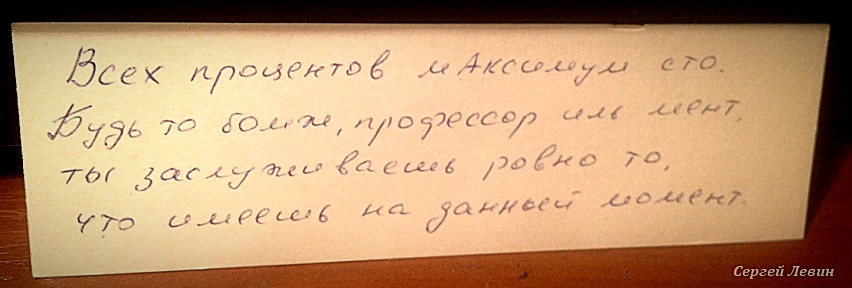 Всех процентов мАксимум сто.
Будь то бомж, профессор иль мент,
ты заслуживаешь ровно то,
что имеешь на данный момент.
Сергей Левин